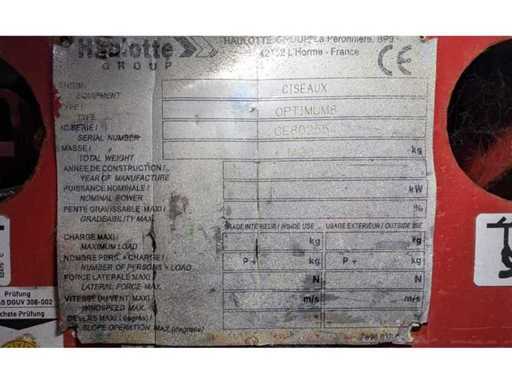 Haulotte
GROUP
HAULOTTE GROUP, La Péronnière, BP9
42152 L'Horme - France
CE
ENGIN
EQUIPMENT
CISEAUX
TYPE
TYPE
OPTIMUM8
N° SERIE /
SERIAL NUMBER
CE80255
MASSE /
TOTAL WEIGHT
kg
ANNEE DE CONSTRUCTION /
YEAR OF MANUFACTURE
PUISSANCE NOMINALE /
NOMINAL POWER
kW
PENTE GRAVISSABLE MAXI /
GRADEABILITY MAX.
%
USAGE INTERIEUR / INSIDE USE
USAGE EXTERIEUR / OUTSIDE USE
CHARGE MAXI /
MAXIMUM LOAD
kg kg
NOMBRE PERS. + CHARGE /
NUMBER OF PERSONS + LOAD
P + kg P + kg
FORCE LATERALE MAXI /
LATERAL FORCE MAX.
N N
VITESSE DU VENT MAXI /
WINDSPEED MAX.
m/s m/s
DEVERS MAXI (degrés) /
SLOPE OPERATION MAX (degrees)
Prüfung
DGUV 308-002
Nächste Prüfung